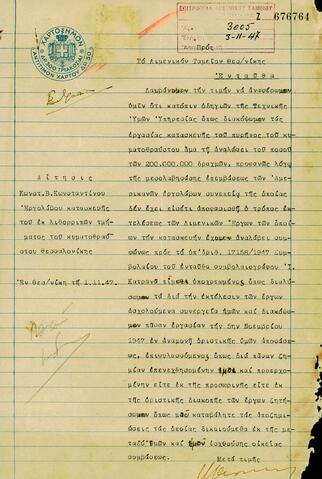 Ζ 676764
3005
3-11-47
ΧΑΡΤΟΣΗΜΟΝ
Τό Λιμενικόν Ταμεῖον Θεσ/νίκης
Ἐνταῦθα
Λαμβάνομεν τήν τιμήν νά ἀναφέρωμεν
ὑμῖν ὅτι κατόπιν ὁδηγιῶν τῆς Τεχνικῆς
Ὑμῶν Ὑπηρεσίας ὅπως διακόψωμεν τάς
ἐργασίας κατασκευῆς τοῦ πυρῆνος τοῦ κυ
ματοθραύστου ἅμα τῇ ἀναλώσει τοῦ ποσοῦ
τῶν 200.000.000 δραχμῶν, προφανῶς λόγῳ
τῆς μεσολαβησάσης ἐπεμβάσεως τῶν Ἀμε-
ρικανῶν ἐργολάβων συνεπείᾳ τῆς ὁποίας
δέν ἔχει εἰσέτι ἀποφασισθῆ ὁ τρόπος ἐκ-
τελέσεως τῶν Λιμενικῶν Ἔργων τῶν ὁποίων
τήν κατασκευήν ἔχομεν ἀναλάβει συμφώ
νως πρός τό ὑπ'ἀριθ. 17158/1947 Συμ
βόλαιον τοῦ ἐνταῦθα συμβολαιογράφου
Κατρανᾶ εἴμεθα ὑποχρεωμένοι ὅπως διαλύ-
σωμεν τά διά τήν ἐκτέλεσιν τῶν ἔργων
ἀσχολούμενα συνεργεῖα ἡμῶν καί διακόψω
μεν πᾶσαν ἐργασίαν τήν 5ην Νοεμβρίου
1947 ἐν ἀναμονῇ ὁριστικῆς ὑμῶν ἀποφάσε-
ως, ἐπιφυλασσόμενος ὅπως διά πᾶσαν ζη
μίαν ἐπενεχθησομένην καί προερχο-
μένην εἴτε ἐκ τῆς προσωρινῆς εἴτε ἐκ
τῆς ὁριστικῆς διακοπῆς τῶν ἔργων ζητή-
σωμεν ὅπως μοῦ καταβάλητε τάς ἀποζημιώ
σεις τάς ὁποίας δικαιούμεθα ἐκ τῆς με-
ταξύ Ὑμῶν καί ἰσχυούσης οἰκείας
συμβάσεως.
Μετά τιμῆς
Αἴτησις
Κωνστ.Β.Κωνσταντίνου
Ἐργολάβου κατασκευῆς
τοῦ ἐκ λιθορριπῶν τμή-
ματος τοῦ κυματοθραύ-
στου Θεσσαλονίκης
Ἐν Θεσ/νίκῃ τῇ 1.11.47.